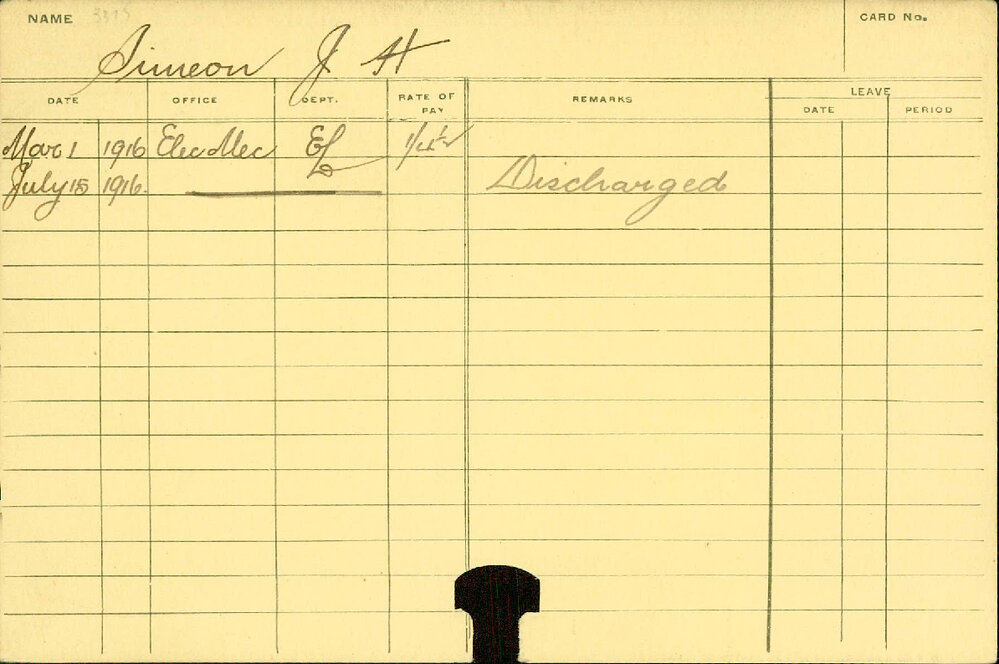 NAME
CARD No.
Simeon J H
DATE OFFICE DEPT. RATE OF PAY REMARKS LEAVE
DATE PERIOD
Mar 1 1916 Elec Mec EL
July 15 1916. Discharged